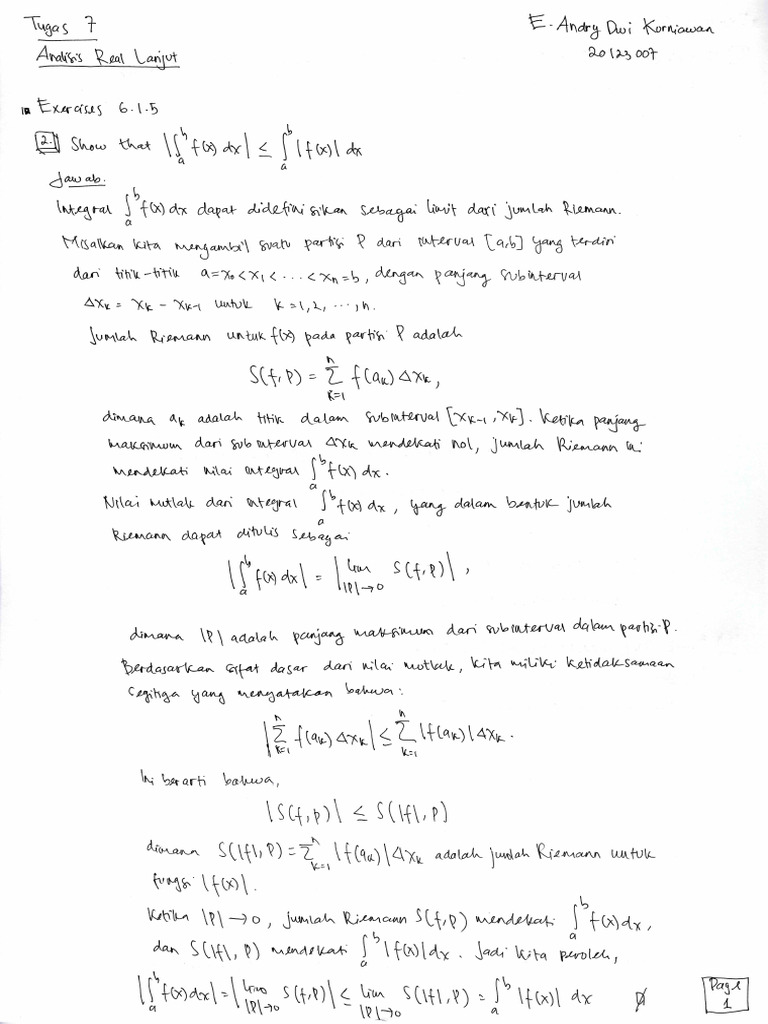 Tugas 7
E. Andry Dwi Kurniawan
Analisis Real Lanjut
20123007
Exercises 6.1.5
2. Show that |∫_a^b f(x) dx| ≤ ∫_a^b |f(x)| dx
Jawab.
Integral ∫_a^b f(x) dx dapat didefinisikan sebagai limit dari jumlah Riemann.
Misalkan kita mengambil suatu partisi P dari interval [a,b] yang terdiri
dari titik-titik a = x₀ < x₁ < ... < xₙ = b, dengan panjang subinterval
Δxₖ = xₖ - xₖ₋₁ untuk k = 1,2, ..., n.
Jumlah Riemann untuk f(x) pada partisi P adalah
S(f,P) = Σ_{k=1}^n f(aₖ) Δxₖ,
dimana aₖ adalah titik dalam subinterval [xₖ₋₁, xₖ]. Ketika panjang
maksimum dari subinterval Δxₖ mendekati nol, jumlah Riemann ini
mendekati nilai integral ∫_a^b f(x) dx.
Nilai mutlak dari integral ∫_a^b f(x) dx, yang dalam bentuk jumlah
Riemann dapat ditulis sebagai
|∫_a^b f(x) dx| = |lim_{|P|→0} S(f,P)|,
dimana |P| adalah panjang maksimum dari subinterval dalam partisi P.
Berdasarkan sifat dasar dari nilai mutlak, kita miliki ketidaksamaan
segitiga yang menyatakan bahwa:
|Σ_{k=1}^n f(aₖ) Δxₖ| ≤ Σ_{k=1}^n |f(aₖ)| Δxₖ.
Ini berarti bahwa,
|S(f,P)| ≤ S(|f|,P)
dimana S(|f|,P) = Σ_{k=1}^n |f(aₖ)| Δxₖ adalah jumlah Riemann untuk
fungsi |f(x)|.
Ketika |P| → 0, jumlah Riemann S(f,P) mendekati ∫_a^b f(x) dx,
dan S(|f|,P) mendekati ∫_a^b |f(x)| dx. Jadi kita peroleh,
|∫_a^b f(x) dx| = |lim_{|P|→0} S(f,P)| ≤ lim_{|P|→0} S(|f|,P) = ∫_a^b |f(x)| dx
Page
1